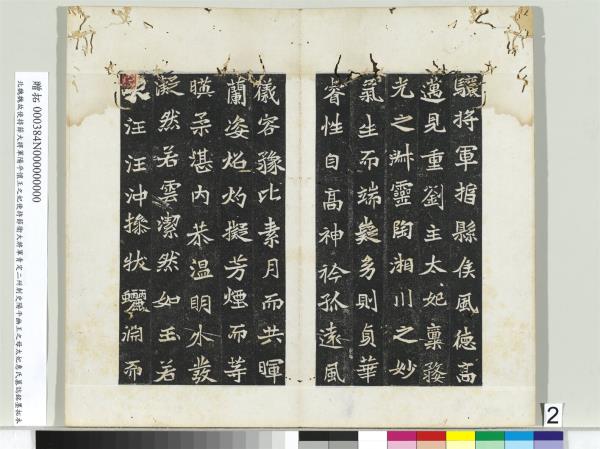 驤將軍揩縣侯風德高
邁見重劉主太妃稟婺
光之靈陶湘川之妙
氣生而端嶷多則貞華
睿性自高神衿孤遠風
儀容豫比素月而共暉
蘭姿焰灼擬芳煙而等
暎柔湛內恭溫明外發
凝然若雲潔然如玉若
汪汪沖摻狀淵而
贈拓 000384N000000000
北魏魏故使持節大將軍陽平王之妃使持節衛大將軍青定二州刺史陽平幽王之母太妃氏墓誌銘墨拓本
2